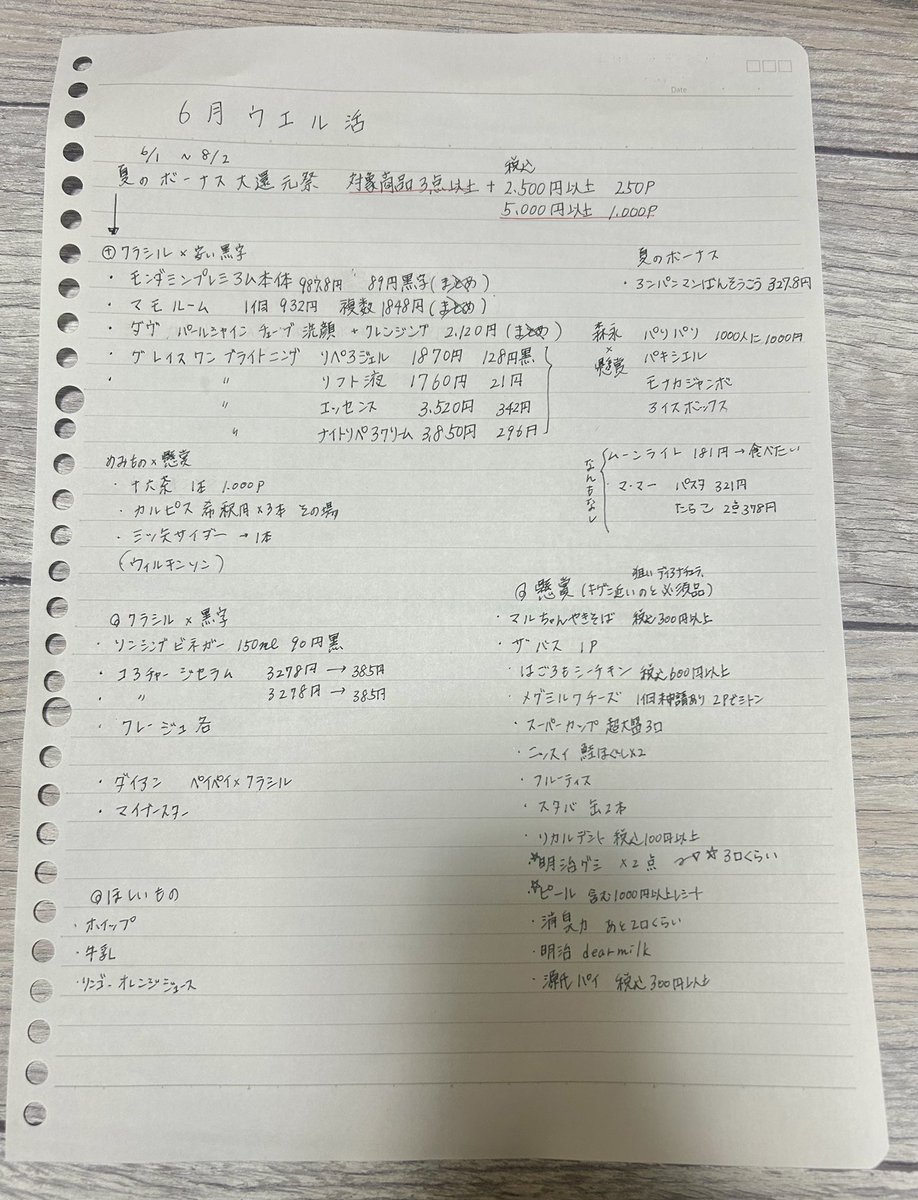 Date
6月ウエル活
6/1 ~ 8/2
夏のボーナス大還元祭 対象商品3点以上 + 税込 2,500円以上 250P
5,000円以上 1,000P
⊕クラシル×安い黒字
・モンダミンプレミアム本体 987.8円 89円黒字(まとめ)
・マモルーム 1個 932円 複数1848円(まとめ)
・ダヴ パールシャイン チューブ 洗顔 + クレンジング 2,120円(まとめ)
・グレイスワン ブライトニング リペアジェル 1870円 128円黒
・ 〃 リフト液 1760円 21円
〃 エッセンス 3,520円 342円
〃 ナイトリペアクリーム 3,850円 296円
夏のボーナス
・アンパンマンばんそうこう 327.8円
森永×懸賞 パリパリ 1000人に1000円
パキシエル
モナカジャンボ
アイスボックス
のみもの×懸賞
・十六茶 1本 1.000P
・カルピス 希釈用×3本 その場
・三ツ矢サイダー → 1本
(ウィルキンソン)
なんもなし
ムーンライト 181円→食べたい
・マ・マー パスタ 321円
たらこ 2点378円
◎クラシル×黒字
・リンシングビネガー 150ml 90円黒
・コラチャージセラム 3278円→385円
・ 〃 3278円→385円
・クレージュ各
・ダイアン ペイペイ×クラシル
・マイナースター
◎ほしいもの
・ホイップ
・牛乳
・リンゴ-オレンジジュース
狙い ディアナチュラ、
◎懸賞(キゲン近いのと必須品)
・マルちゃんやきそば 税込300円以上
・ザバス 1P
・はごろもシーチキン 税込600円以上
・メグミルクチーズ 1個申請あり 2Pでミトン
・スーパーカップ 超大盛3口
・ニッスイ 鮭ほぐし×2
・フルーティス
・スタバ 缶2本
・リカルデント 税込100円以上
☆明治グミ ×2点 ☆3口くらい
☆ビール 含む1000円以上レシート
・消臭力 あと2口くらい
・明治 dearmilk
・源氏パイ 税込300円以上